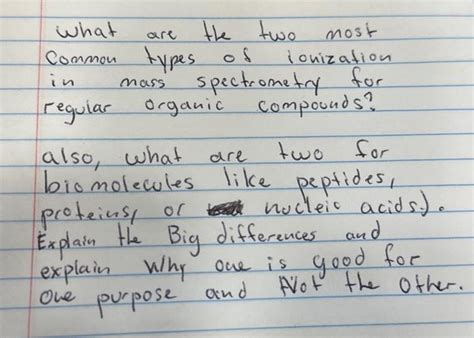 what are the two most
common types of ionization
in mass spectrometry for
regular organic compounds?
also, what are two for
biomolecules like peptides,
proteins, or nucleic acids).
Explain the Big differences and
explain Why one is good for
one purpose and Not the other.